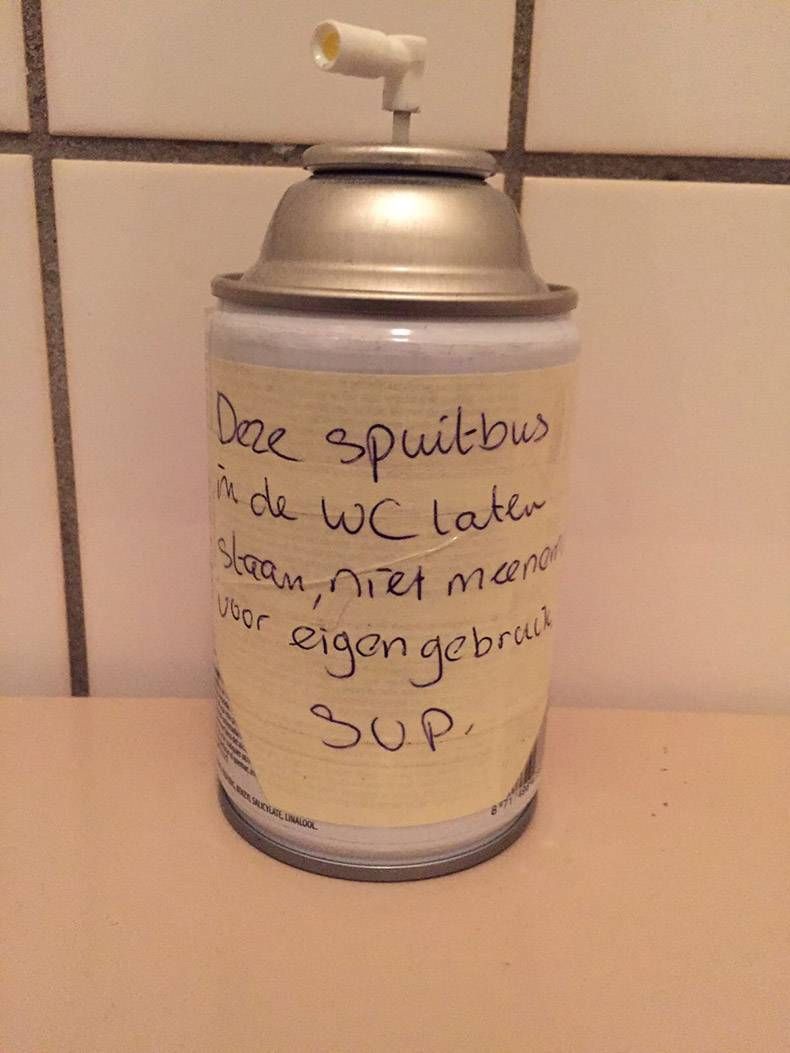 Deze spuitbus
in de WC laten
staan, niet meenem
voor eigen gebruik
SUP.
SALICYLATE, LINALOOL.